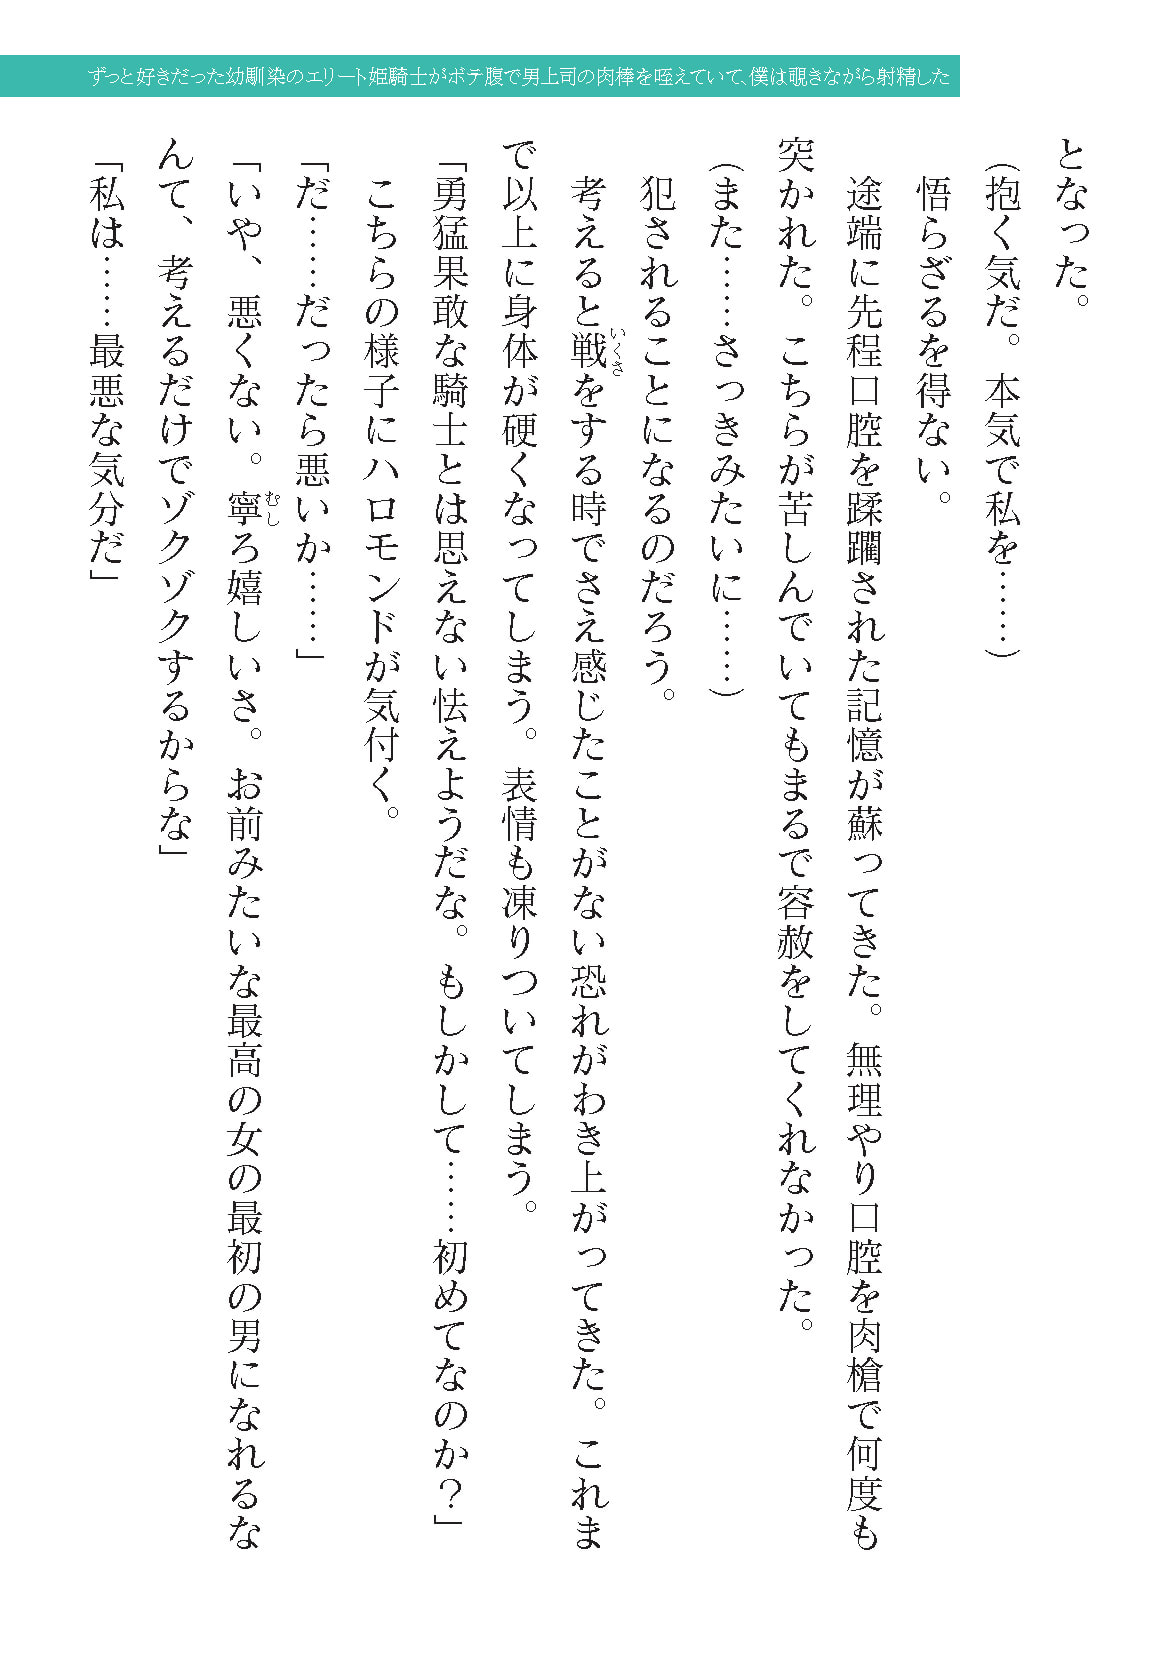 ずっと好きだった幼馴染のエリート姫騎士がボテ腹で男上司の肉棒を咥えていて、僕は覗きながら射精した
となった。
（抱く気だ。本気で私を……）
悟らざるを得ない。
途端に先程口腔を蹂躙された記憶が蘇ってきた。無理やり口腔を肉槍で何度も
突かれた。こちらが苦しんでいてもまるで容赦をしてくれなかった。
（また……さっきみたいに……）
犯されることになるのだろう。
考えると戦いくさをする時でさえ感じたことがない恐れがわき上がってきた。これま
で以上に身体が硬くなってしまう。表情も凍りついてしまう。
「勇猛果敢な騎士とは思えない怯えようだな。もしかして……初めてなのか？」
こちらの様子にハロモンドが気付く。
「だ……だったら悪いか……」
「いや、悪くない。寧むしろ嬉しいさ。お前みたいな最高の女の最初の男になれるな
んて、考えるだけでゾクゾクするからな」
「私は……最悪な気分だ」